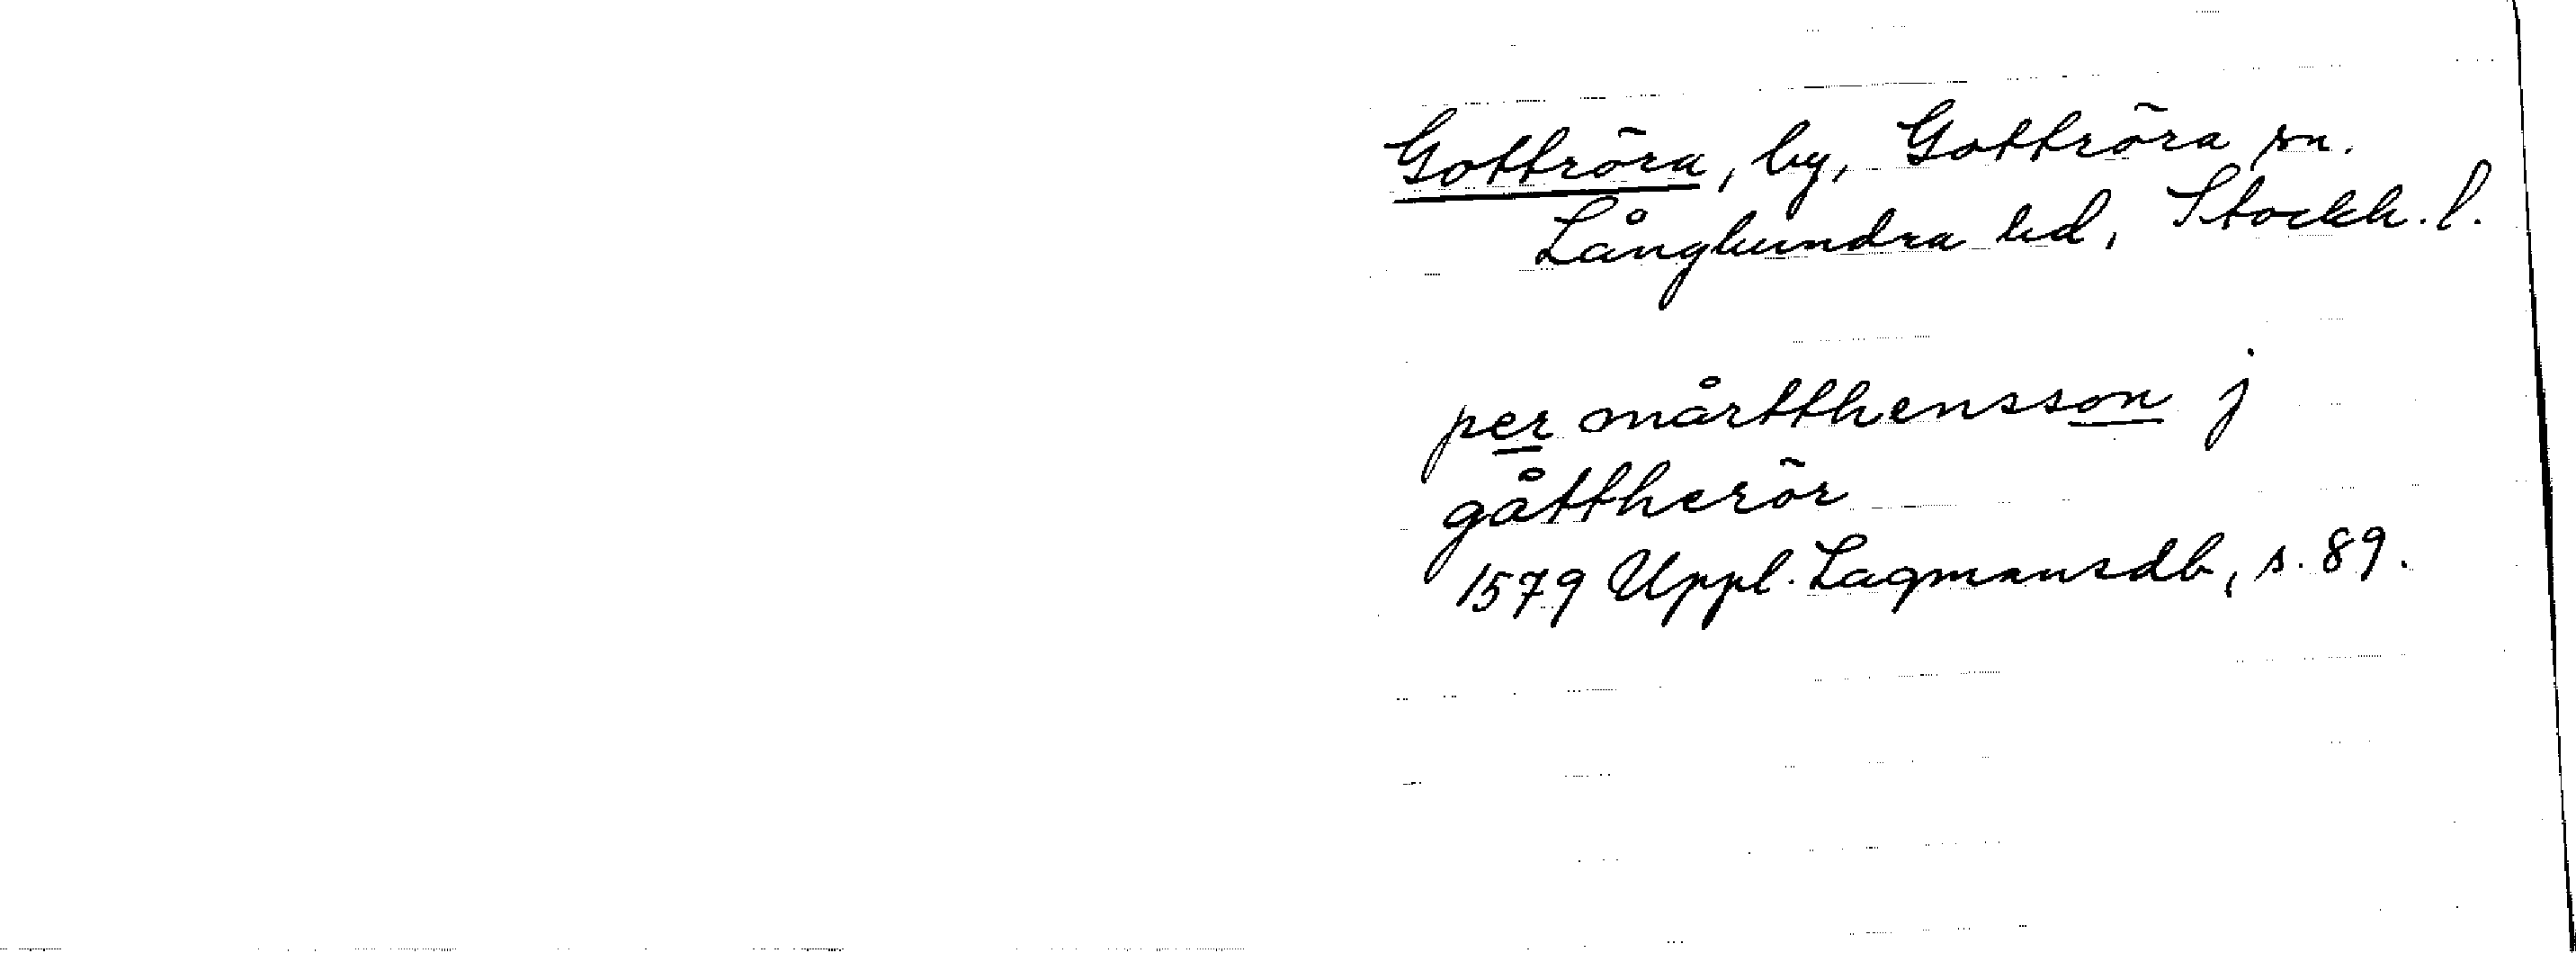 Gottröra, by, Gottröra sn.
Långhundra hd, Stockh. l.
per mårtthensson j
gåttherör
1579 Uppl. Lagmansdb, s. 89.